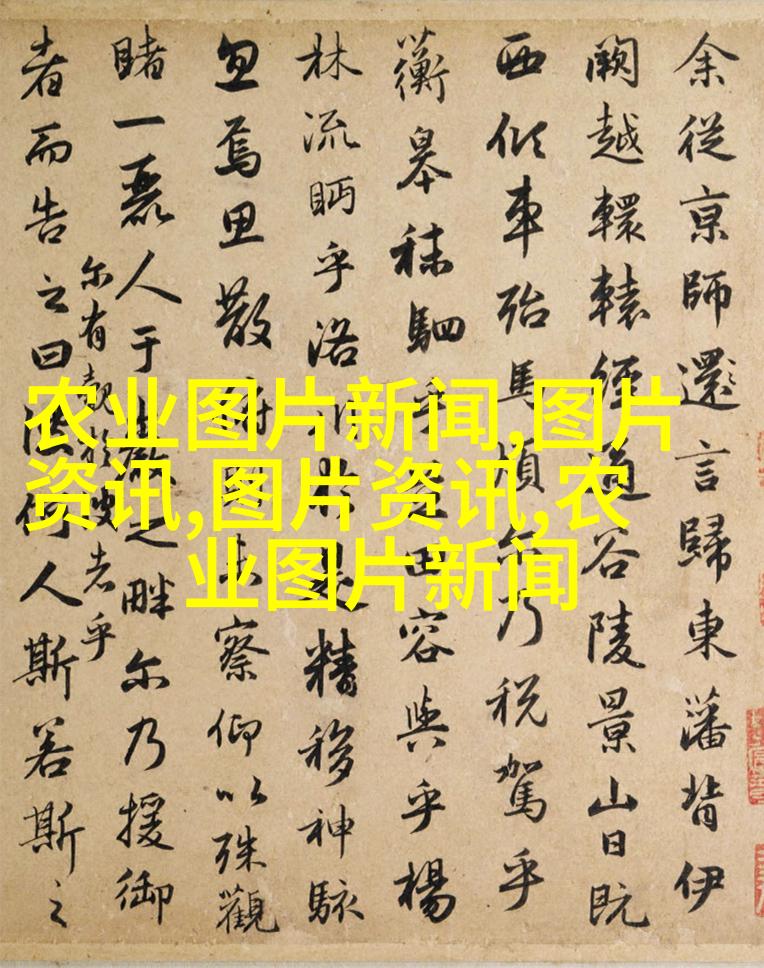 余從京師還言歸東藩背伊
闕越轘轅經通谷陵景山日既
西傾車殆馬煩尔乃税駕乎
蘅皋秣駟乎田容與乎楊
林流眄乎洛精移神駭
忽焉思散未察仰以殊觀
睹一麗人于巖之畔尔乃援御
尔有覿於彼者乎
者而告之曰何人斯若斯之
农业图片新闻,图片
资讯,图片资讯,农
业图片新闻